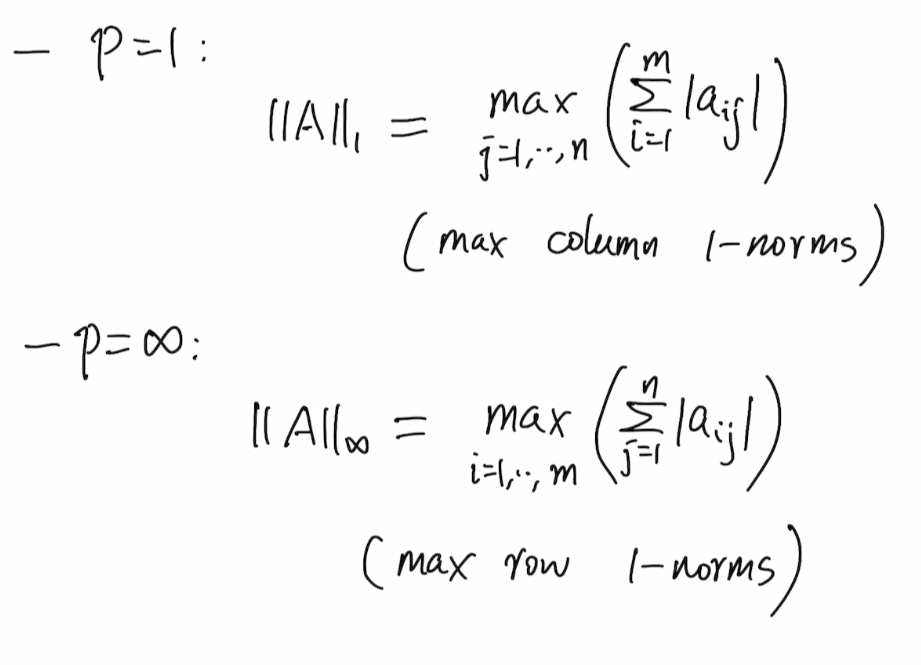 – p=1:
||A||₁ = max_{j=1,··,n} (∑_{i=1}^{m} |a_{ij}|)
(max column 1-norms)
– p=∞:
||A||_∞ = max_{i=1,··,m} (∑_{j=1}^{n} |a_{ij}|)
(max row 1-norms)